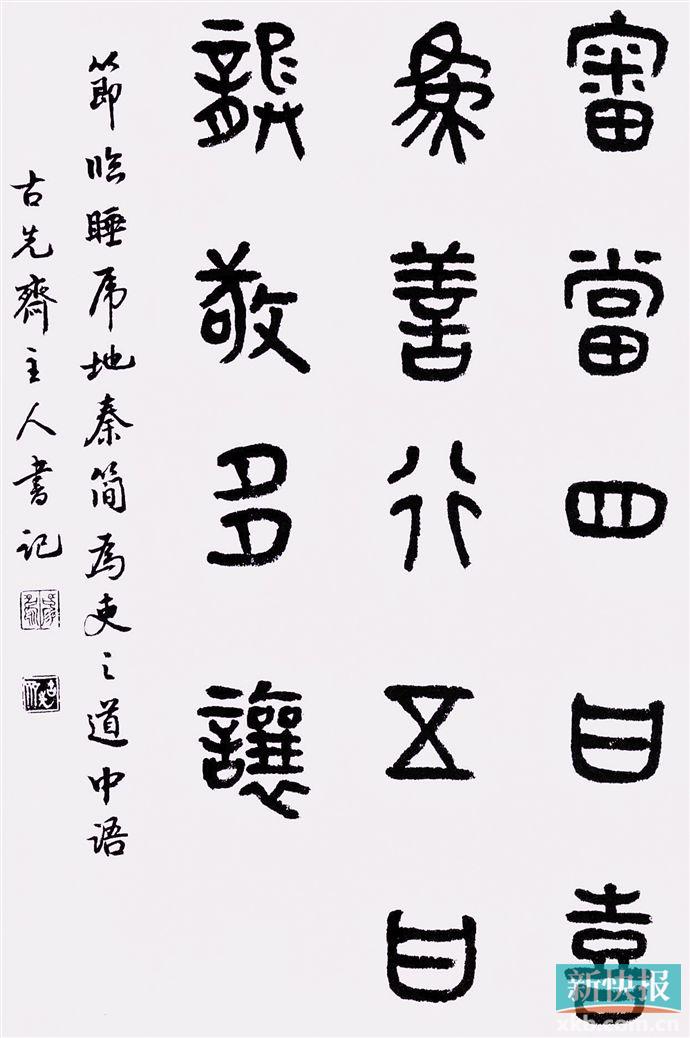 審當四曰喜
為善行五曰
龔敬多讓
節臨睡虎地秦简為吏之道中语
古先齋主人書記
新快报
xkb.com.cn